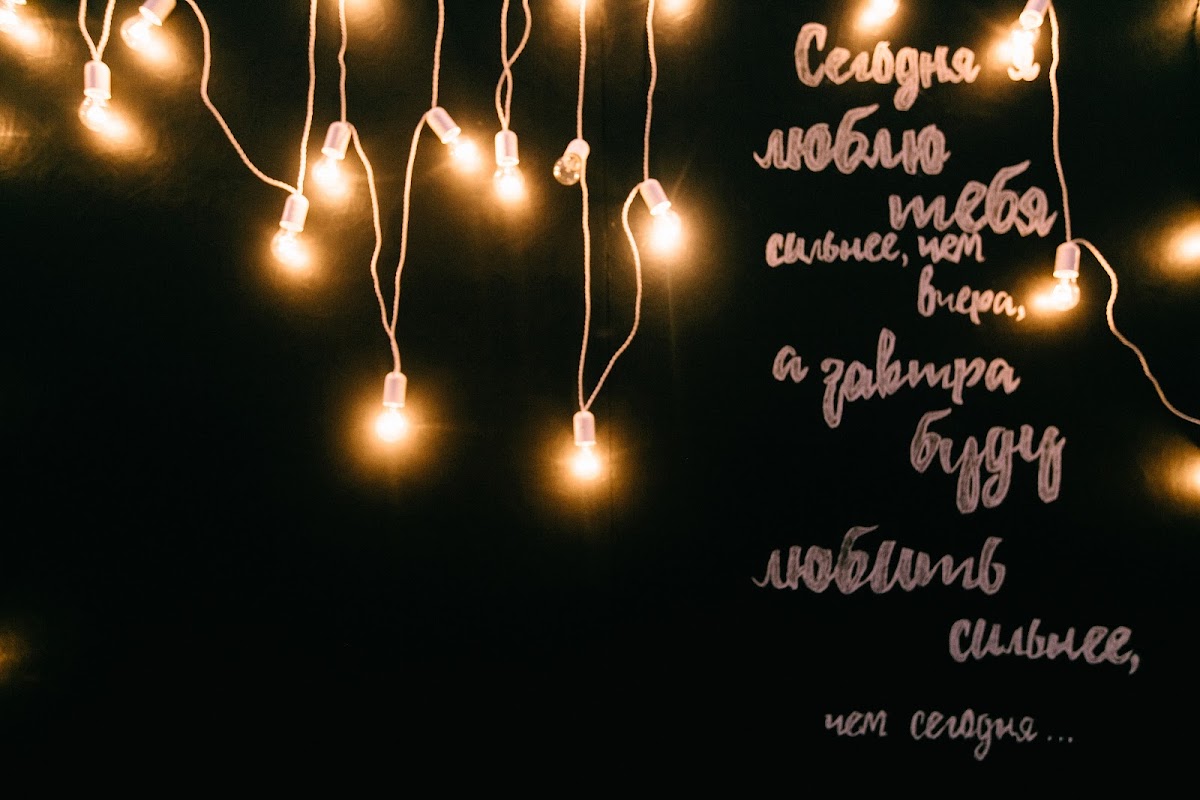 Сегодня я
люблю
тебя
сильнее, чем
вчера,
а завтра
буду
любить
сильнее,
чем сегодня...